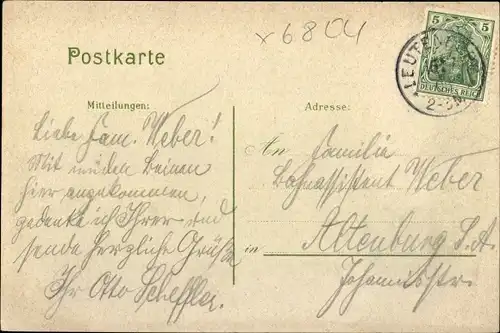 x6804
5 5
DEUTSCHES REICH
LEUTEN
2-3N
Postkarte
Mitteilungen:
Adresse:
Liebe Fam. Weber!
Mit müden Beinen
hier angekommen,
gedenke ich Ihrer und
sende herzliche Grüße
Ihr Otto Scheffler.
An Familie
Bahnassistent Weber
in Altenburg S.A.
Johannisstr.